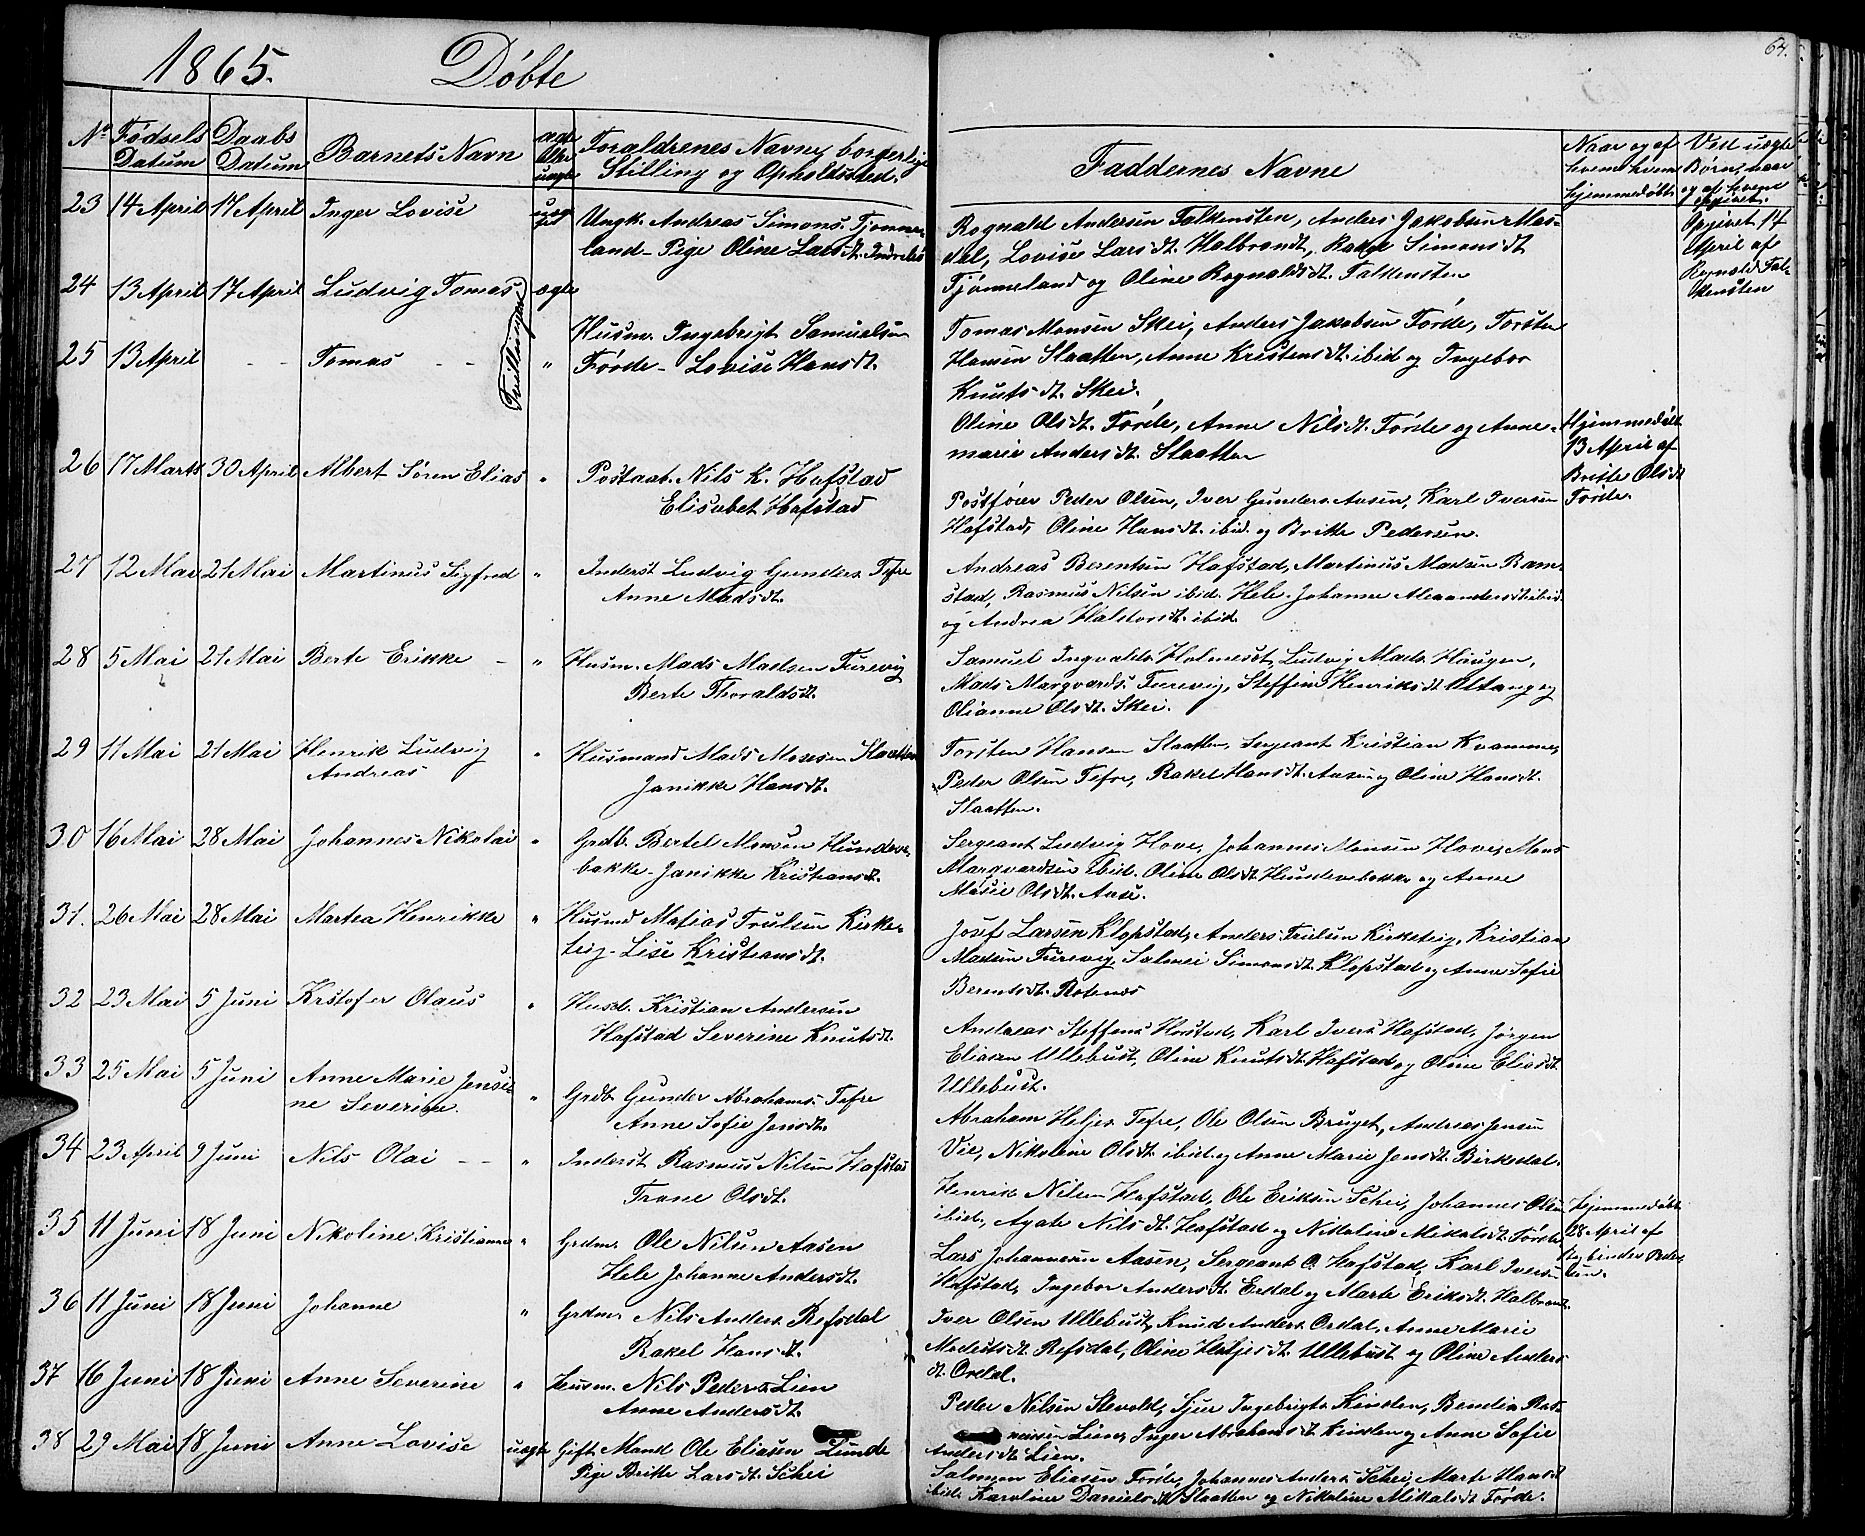 1865. Døbte
64.
No
Fødsels Datum
Daabs Datum
Barnets Navn
ægte eller uægte
Forældrenes Navne, borgerlige Stilling og Opholdssted.
Faddernes Navne
Naar og af hvem hjemmedøbt
Ved uægte Børn, naar og af hvem opgivet.
23 14 April 17 April Inger Lovise uægte Ungk. Andreas Simons. Tjønne-
land - Pige Oline Larsdt. Indrebø
Rognald Andersen Falkensten, Anders Jakobsen Mas-
dal, Lovise Larsdt. Halbrendt, Rakel Simonsdt
Tjønneland og Oline Rognaldsdt. Falkensten
Opgivet 14
April af
Rognald Fal-
kensten
24 13 April 17 April Ludvig Tomas ægte
Tvillinger
Husm. Ingebrigt Samuelsen
25 13 April - - Tomas - - " Førde - Lovise Hansdt.
Tomas Monsen Skei, Anders Jakobsen Førde, Torsten
Hansen Slaatten, Anne Kristensdt. ibid og Ingebor
Knutsdt. Skei.
Oline Olsdt. Førde, Anne Nilsdt. Førde og Anne-
marie Andersdt. Slaatten
Hjemmedøbt
13 April af
Britte Olsdt
Førde.
26 17 Marts 30 April Albert Søren Elias " Postaab. Nils K. Hafstad
Elisabet Hafstad
Postfører Peder Olsen, Iver Gunders. Aasen, Karl Iversen
Hafstad, Oline Hansdt. ibid. og Britte Pedersen.
27 12 Mai 21 Mai Martinus Sigfred " Inderst Ludvig Gunders. Tefre
Anne Madsdt.
Andreas Berentsen Hafstad, Martinus Madsen Ram-
stad, Rasmus Nilsen ibid. Hele Johanne Alexandersdt ibid.
og Andrea Halvorsdt. ibid.
28 5 Mai 21 Mai Berte Erikke - " Husm. Mads Madsen Furevig
Berte Thoraldsdt.
Samuel Ingvalds. Holmeset, Ludvig Mads. Haugen,
Mads Marqvards. Furevig, Steffine Henriksdt Attang og
Olianne Olsdt. Skei.
29 11 Mai 21 Mai Henrik Ludvig " Husmand Mads Mosesen Slaatten
Andreas
Janikke Hansdt.
Torsten Hansen Slaatten, Sergeant Kristian Kvamme,
Peder Olsen Tefre, Rakel Hansdt. Aasen og Oline Hansdt.
Slaatten.
30 16 Mai 28 Mai Johannes Nikolai " Grdb. Bertel Monsen Hundeve-
bakke - Janikke Kristiansdt.
Sergeant Ludvig Hove, Johannes Monsen Hove, Mons
Marqvardsen ibid. Oline Olsdt Hundevebakke og Anne
Marie Olsdt. Aase.
31. 26 Mai 28 Mai Martea Henrikke " Husmd Matias Trulsen Kirke-
teig - Lise Kristiansdt.
Josef Larsen Klopstad, Anders Trulsen Kirketeig, Kristian
Madsen Furevig, Salomei Simonsdt. Klopstad og Anne Sofie
Berentsdt. Rotenes
32 23 Mai 5 Juni Krstofer Olaus " Husb. Kristian Andersen
Hafstad Severine Knutsdt.
Andreas Steffens. Horstad, Karl Ivers. Hafstad, Jørgen
Eliasen Ullebust, Oline Knutsdt. Hafstad og Oline Eliasdt.
Ullebust.
33 25 Mai 5 Juni Anne Marie Jensi-
ne Severine. " Grdb. Gunder Abrahams. Tefre
Anne Sofie Jensdt.
Abraham Heljes. Tefre, Ole Olsen Bruget, Andreas Jensen
Vie, Nikoline Olsdt. ibid. og Anne Marie Jensdt. Birkedal.
34 23 April 9 Juni Nils Olai - - " Inderst Rasmus Nilsen Hafstad
Trone Olsdt.
Henrik Nilsen Hafstad, Ole Eriksen Schei, Johannes Olsen
ibid., Agate Nilsdt. Hafstad og Nikoline Mikalsdt. Førde.
Hjemmedøbt
28 April af
Regbinder Peder-
sen.
35 11 Juni 18 Juni Nikoline Kristianne " Grdm. Ole Nilsen Aasen
Hele Johanne Andersdt.
Lars Johannesen Aasen, Sergeant O. Hafstad, Karl Iversen
Hafstad, Ingebor Andersdt. Erdal og Marte Eriksdt. Halbrendt.
36 11 Juni 18 Juni Johanne " Grdm. Nils Anders. Refsdal
Rakel Hansdt.
Iver Olsen Ullebust, Knud Anders. Ordal, Anne Marie
Modestsdt. Refsdal, Oline Heljesdt. Ullebust og Oline Anders-
dt. Ordal.
37 16 Juni 18 Juni Anne Severine " Husm. Nils Peders. Lien
Anne Andersdt.
Peder Nilsen Slevold, Sjur Ingebrigts. Kinden, Bendix Ras-
mussen Lien, Inger Abrahamsdt. Kinden og Anne Sofie
Andersdt. Lien.
38 29 Mai 18 Juni Anne Lovise uægte Gift Mand Ole Eliasen Lunde
Pige Britte Larsdt. Schei
Salomon Eliasen Førde, Johannes Anders. Schei, Marte Hansdt
ibid. Karoline Danielsdt. Slaatten og Nikoline Mikalsdt. Førde.